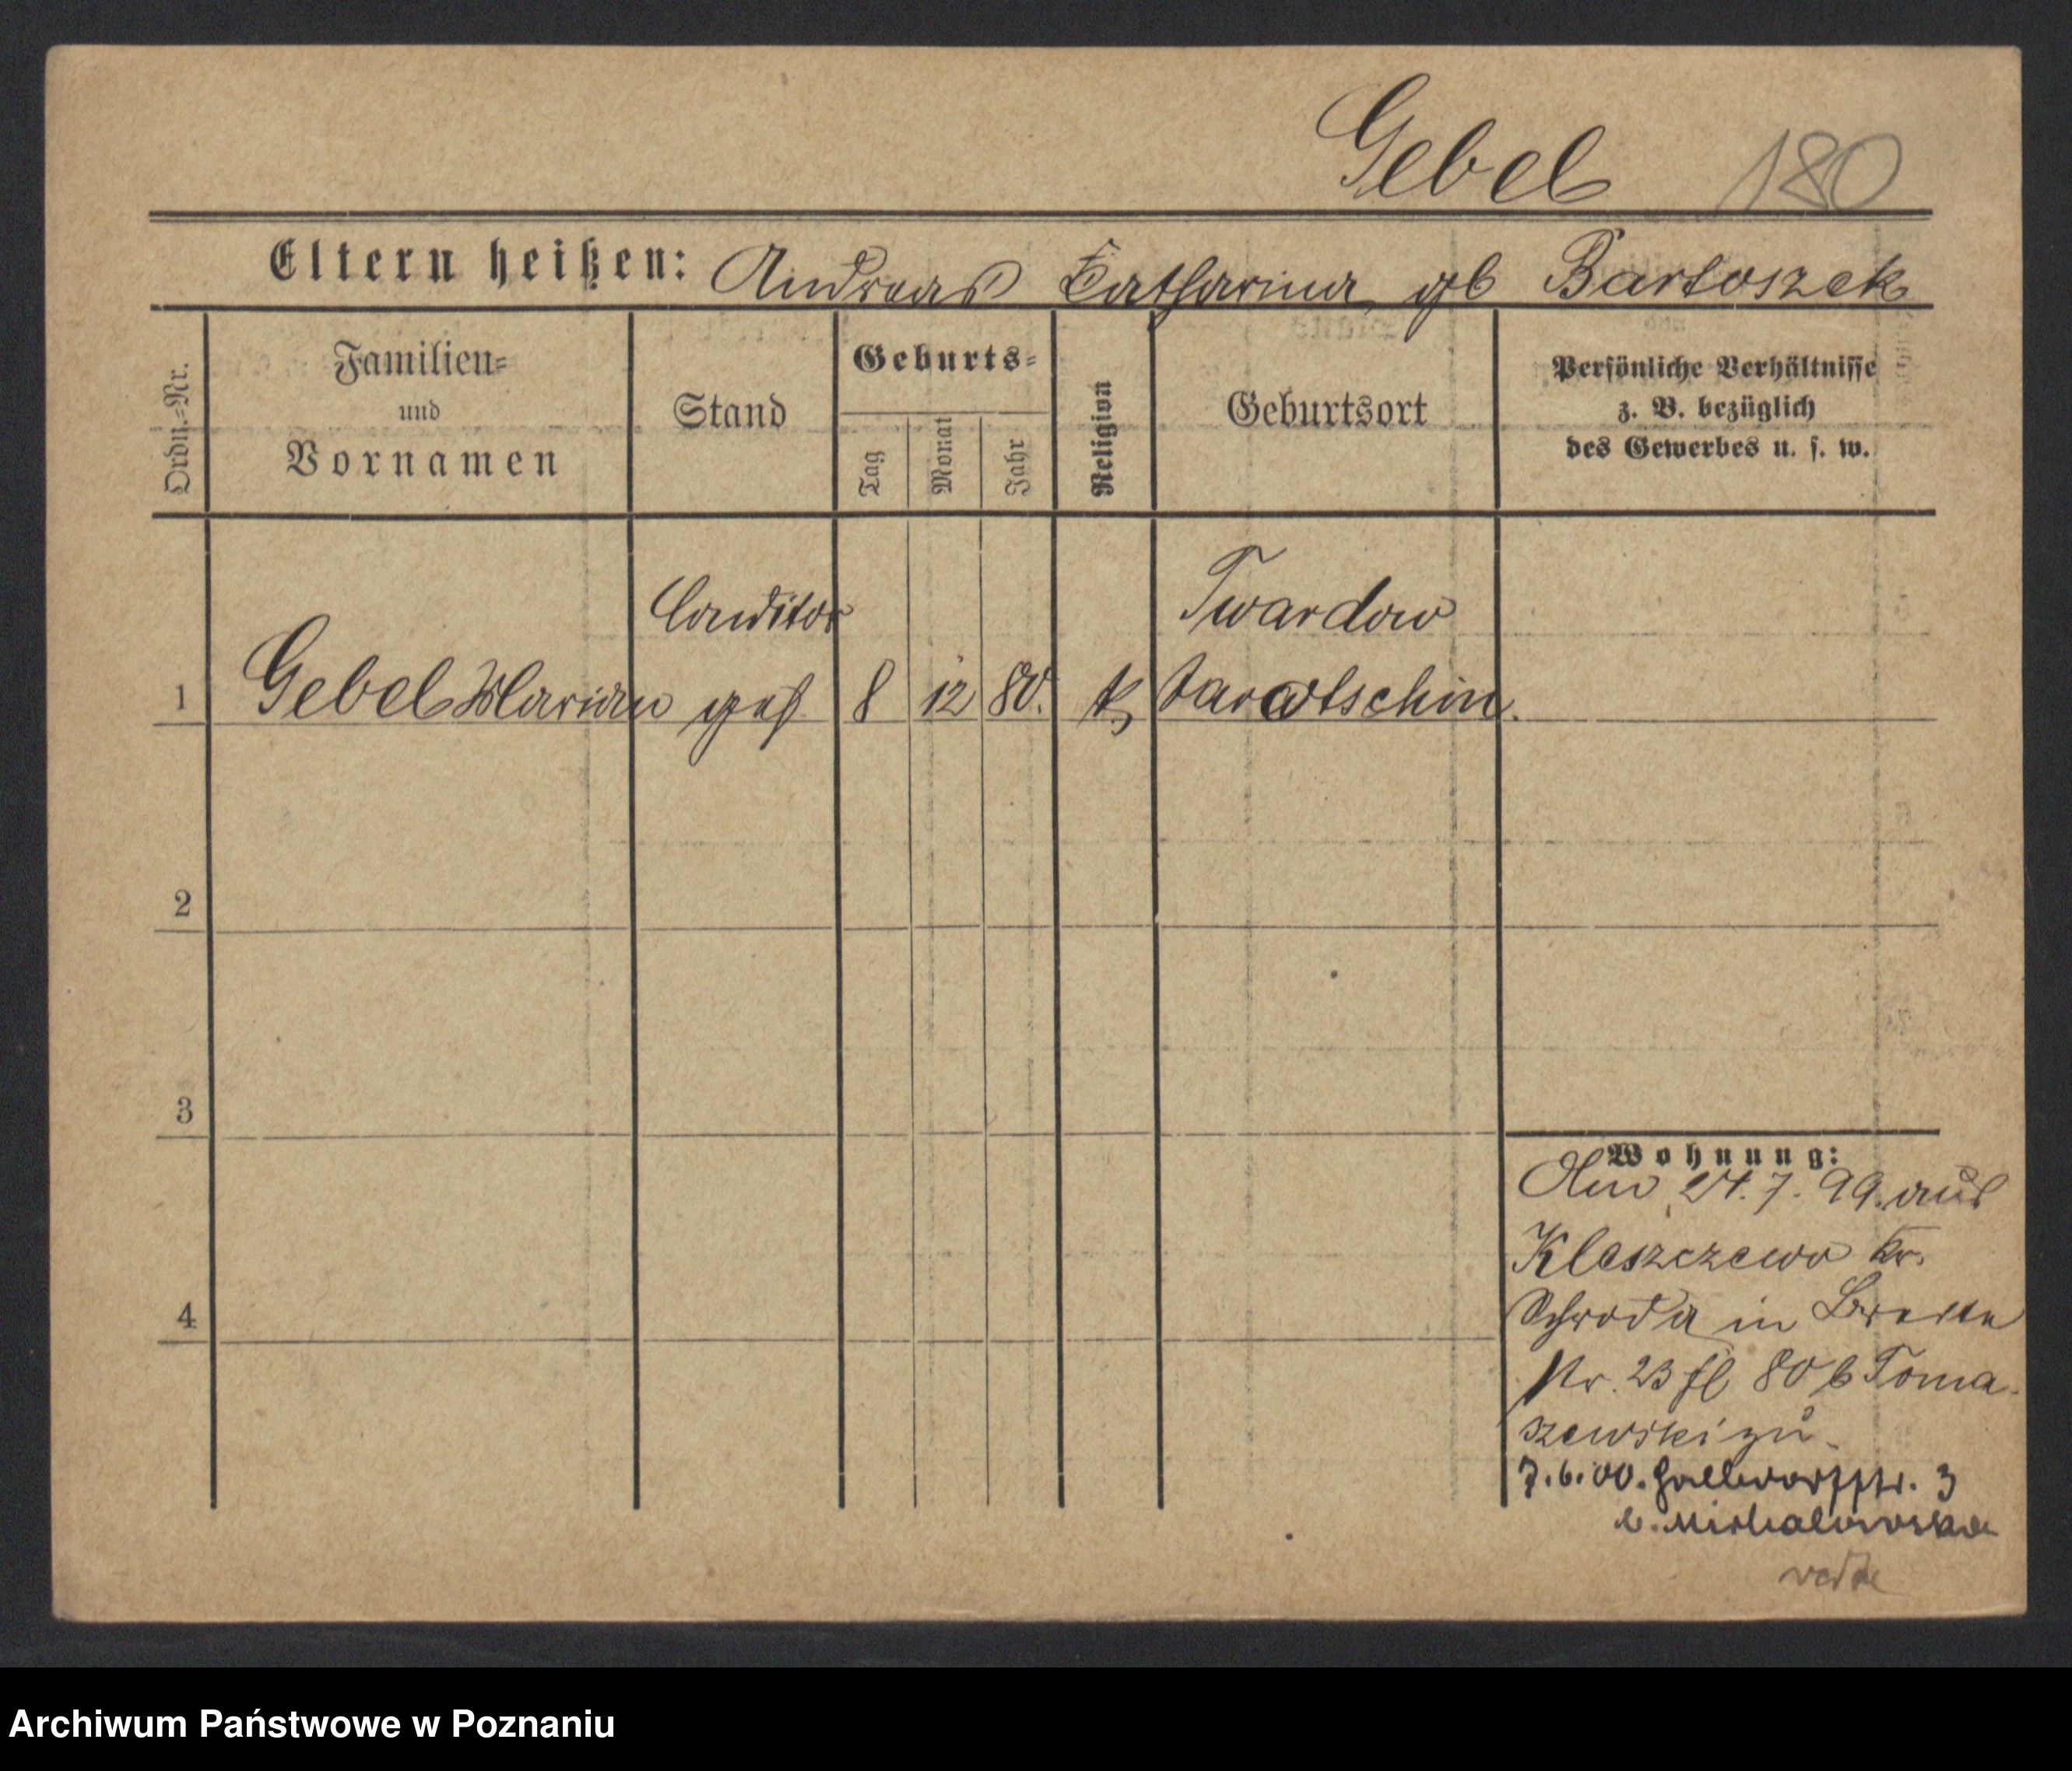 Gebel 180
Eltern heißen: Andreas Catharina gb Bartoszek
Ordn.-Nr.
Familien-
und
Vornamen
Stand
Geburts-
Tag
Monat
Jahr
Religion
Geburtsort
Persönliche Verhältnisse
z. B. bezüglich
des Gewerbes u. s. w.
Conditor Twardow
1 Gebel Marian geh 8 12 80. k
2
3
4
Wohnung:
Am 24. 7. 99. aus
Kleszczewo Kr.
Schroda in Breite
Nr. 23 fl 80 b Toma-
szewski zu
7. 6. 00. Halbdorfstr. 3
b. Michalowska
Archiwum Państwowe w Poznaniu